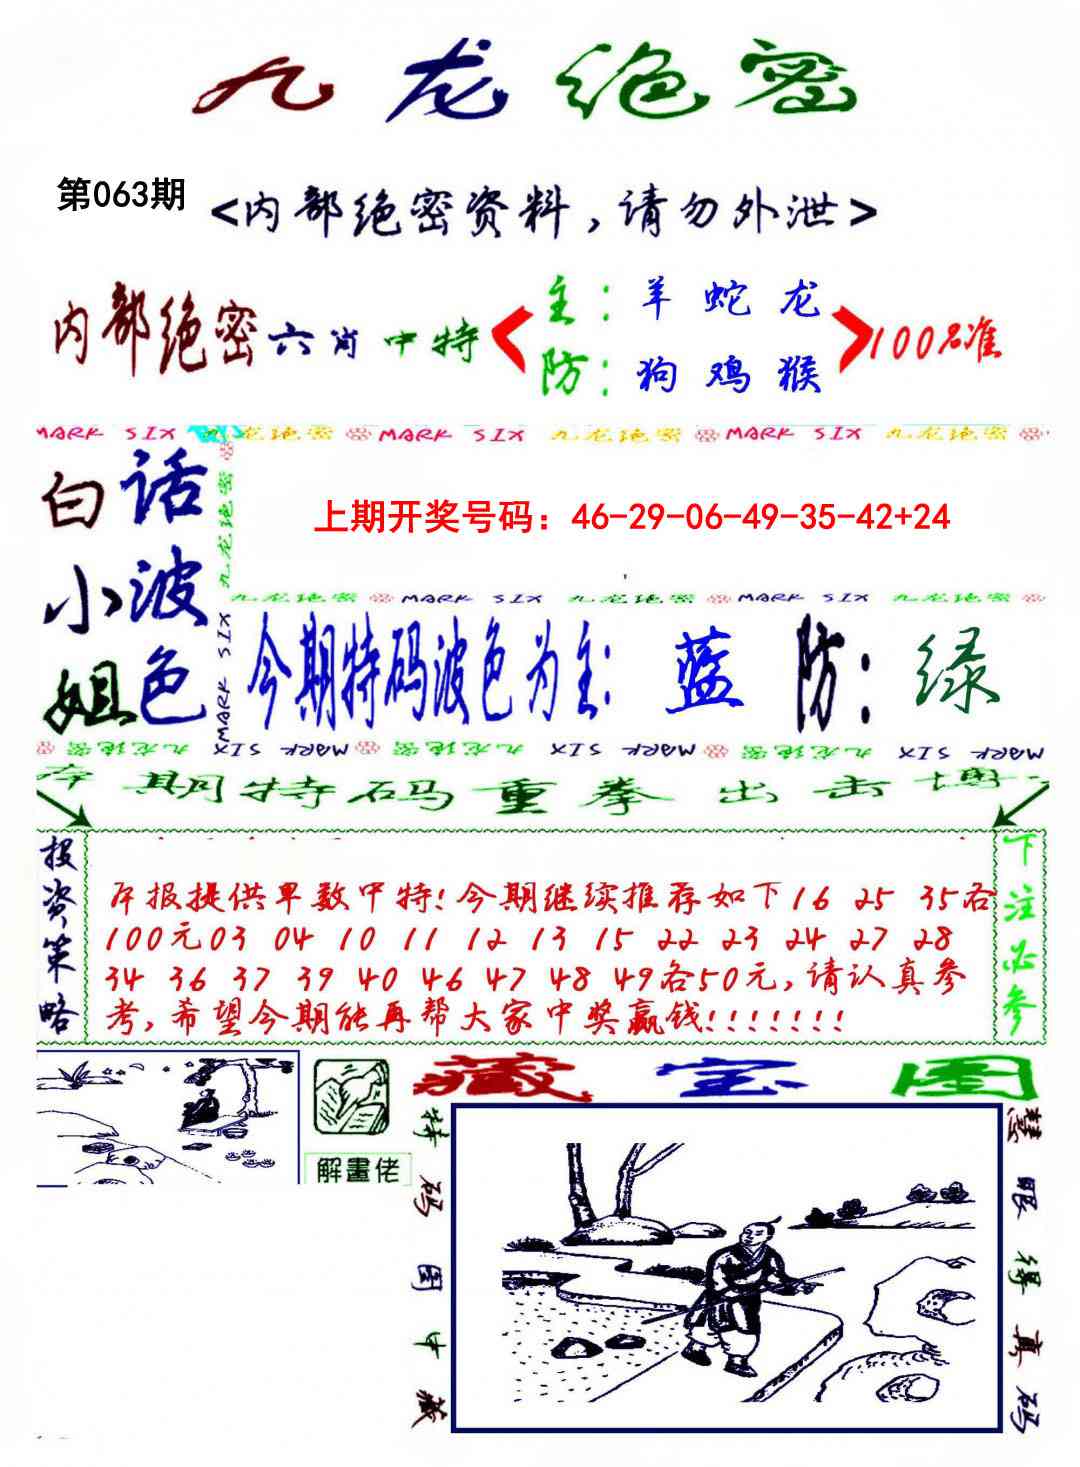 九龙绝密
第063期
<内部绝密资料,请勿外泄>
内部绝密六肖中特
主:羊蛇龙
防:狗鸡猴
100%准
MARK SIX 九龙绝密 MARK SIX 九龙绝密 MARK SIX 九龙绝密
白小姐
话波色
九龙绝密
MARK SIX
上期开奖号码：46-29-06-49-35-42+24
九龙绝密 MARK SIX 九龙绝密 MARK SIX 九龙绝密
今期特码波色为主:蓝 防:绿
九龙绝密 MARK SIX 九龙绝密 MARK SIX 九龙绝密 MARK SIX
本期特码重拳出击博一
投资策略
本报提供单数中特!今期继续推荐如下16 25 35各
100元03 04 10 11 12 13 15 22 23 24 27 28
34 36 37 39 40 46 47 48 49各50元,请认真参
考,希望今期能再帮大家中奖赢钱!!!!!!!
下注必参
解畫佬
藏宝图
特码图中藏
慧眼得真码